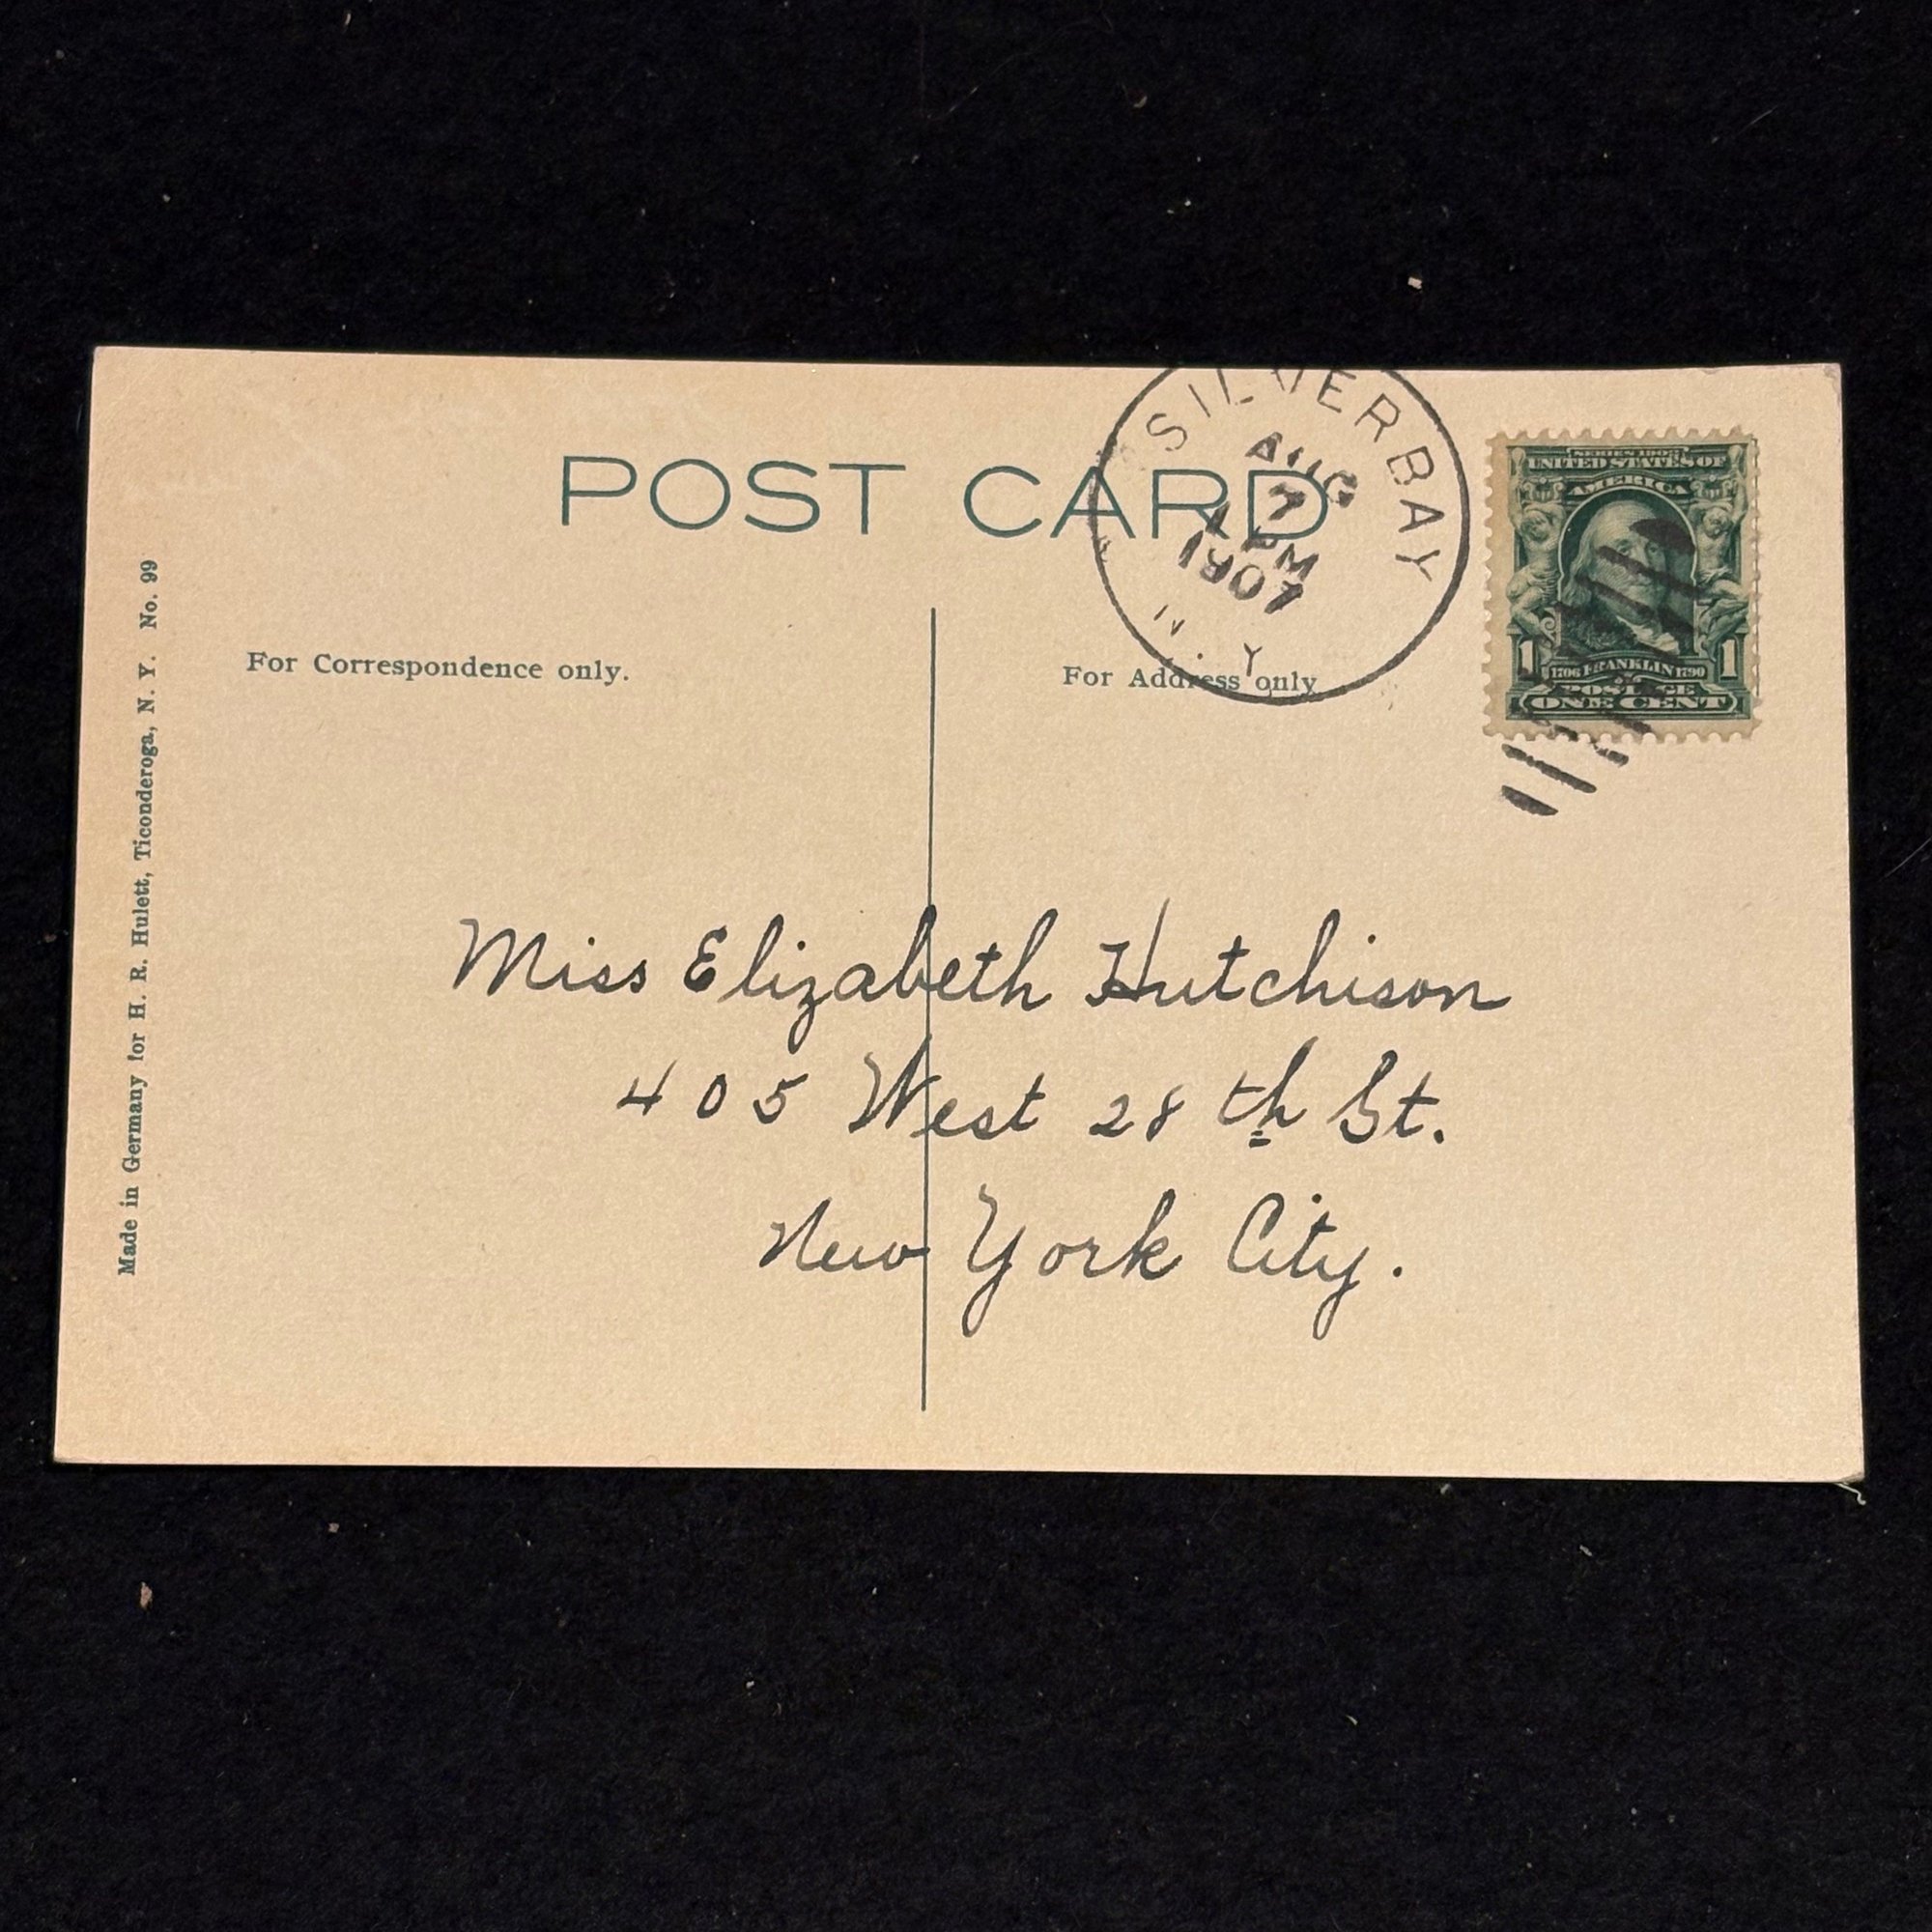 POST CARD
SILVER BAY
AUG
7
1 PM
1907
N. Y.
SERIES 1902
UNITED STATES OF
AMERICA
1 1706 FRANKLIN 1790 1
POSTAGE
ONE CENT
For Correspondence only.
For Address only
Miss Elizabeth Hutchison
405 West 28th St.
New York City.
Made in Germany for H. R. Hulett, Ticonderoga, N. Y. No. 99